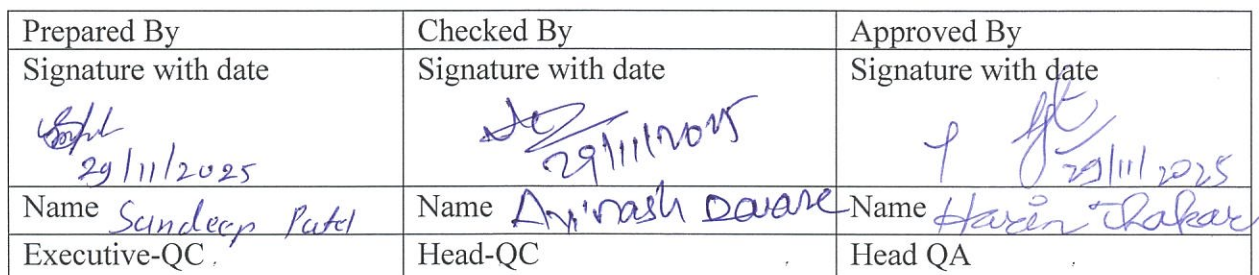 Prepared By
Checked By
Approved By
Signature with date
Signature with date
Signature with date
29/11/2025
29/11/2025
29/11/2025
Name Sandeep Patel
Name Avinash Davare
Name Harin Thakar
Executive-QC
Head-QC
Head QA